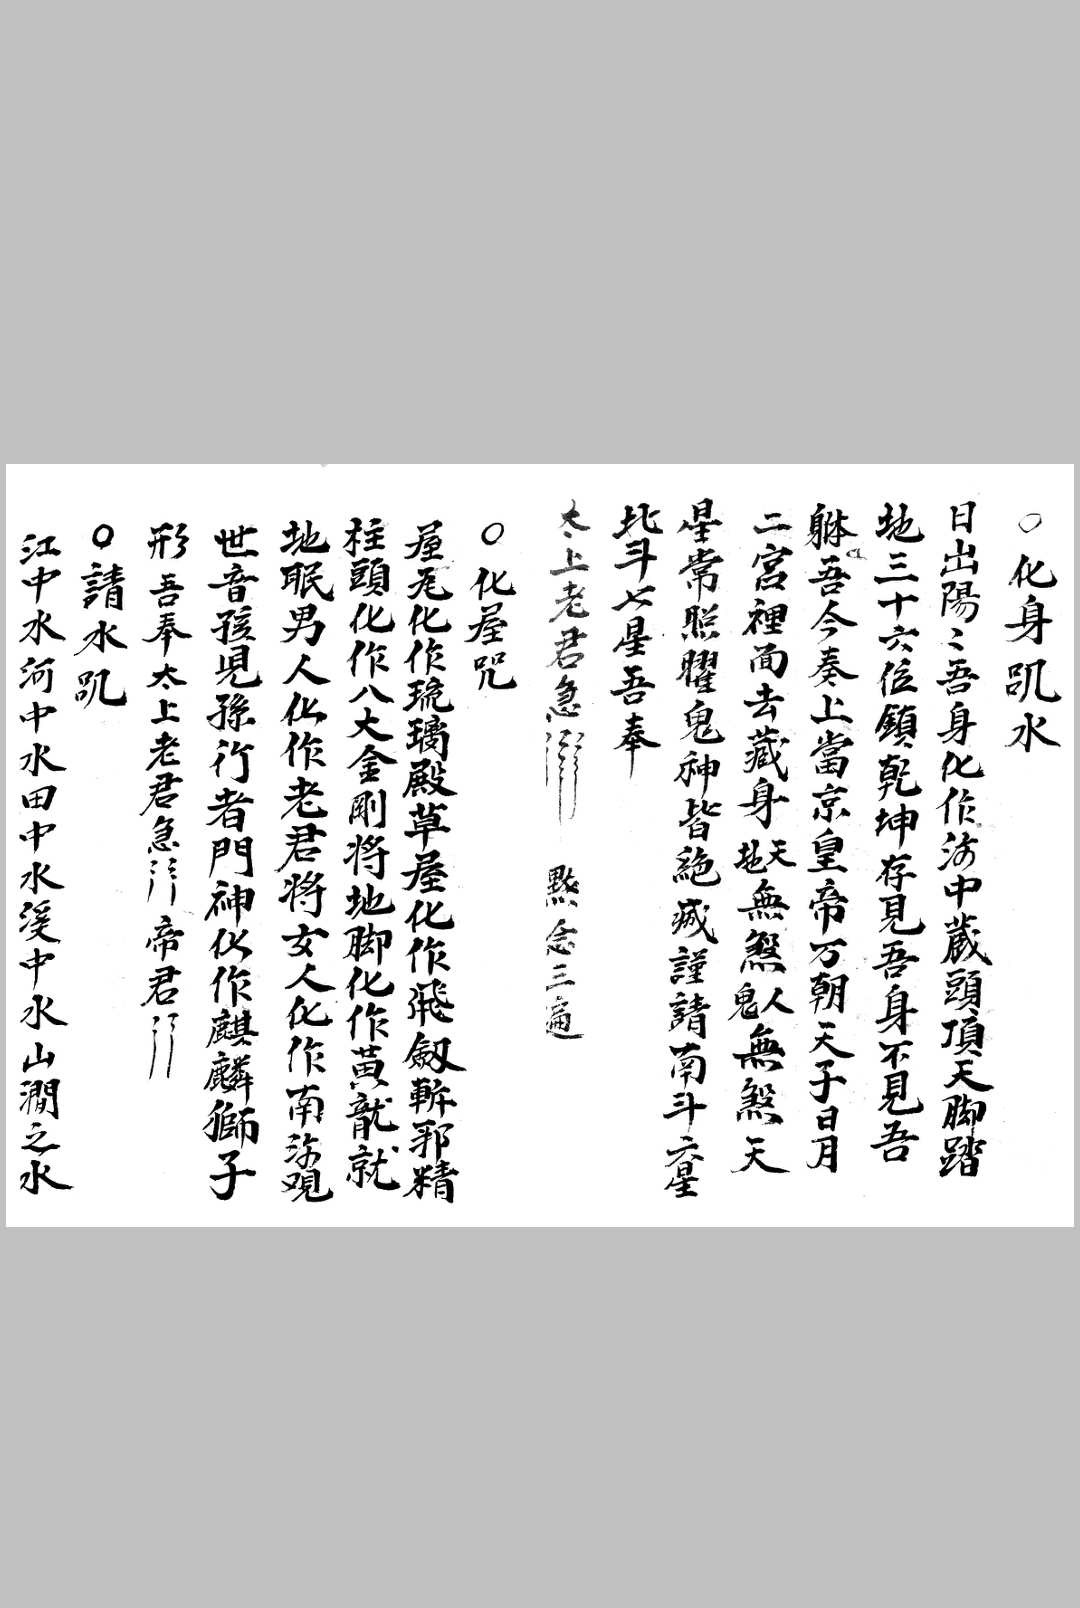 ○化身咒水
日出陽〻吾身化作海中藏頭頂天脚踏
地三十六位鎮乾坤存見吾身不見吾
躰吾今奏上當京皇帝万朝天子日月
二宮裡面去藏身天地無煞人鬼無煞天
星常照曜鬼神皆絶滅謹請南斗六星
北斗七星吾奉
太上老君急 默念三遍
○化屋咒
屋瓦化作琉璃殿草屋化作飛劔斬邪精
柱頭化作八大金剛将地脚化作黄龍就
地眠男人化作老君将女人化作南海观
世音孩児孫行者門神化作麒麟獅子
形 吾奉太上老君急 帝君
○請水咒
江中水河中水田中水溪中水山澗之水